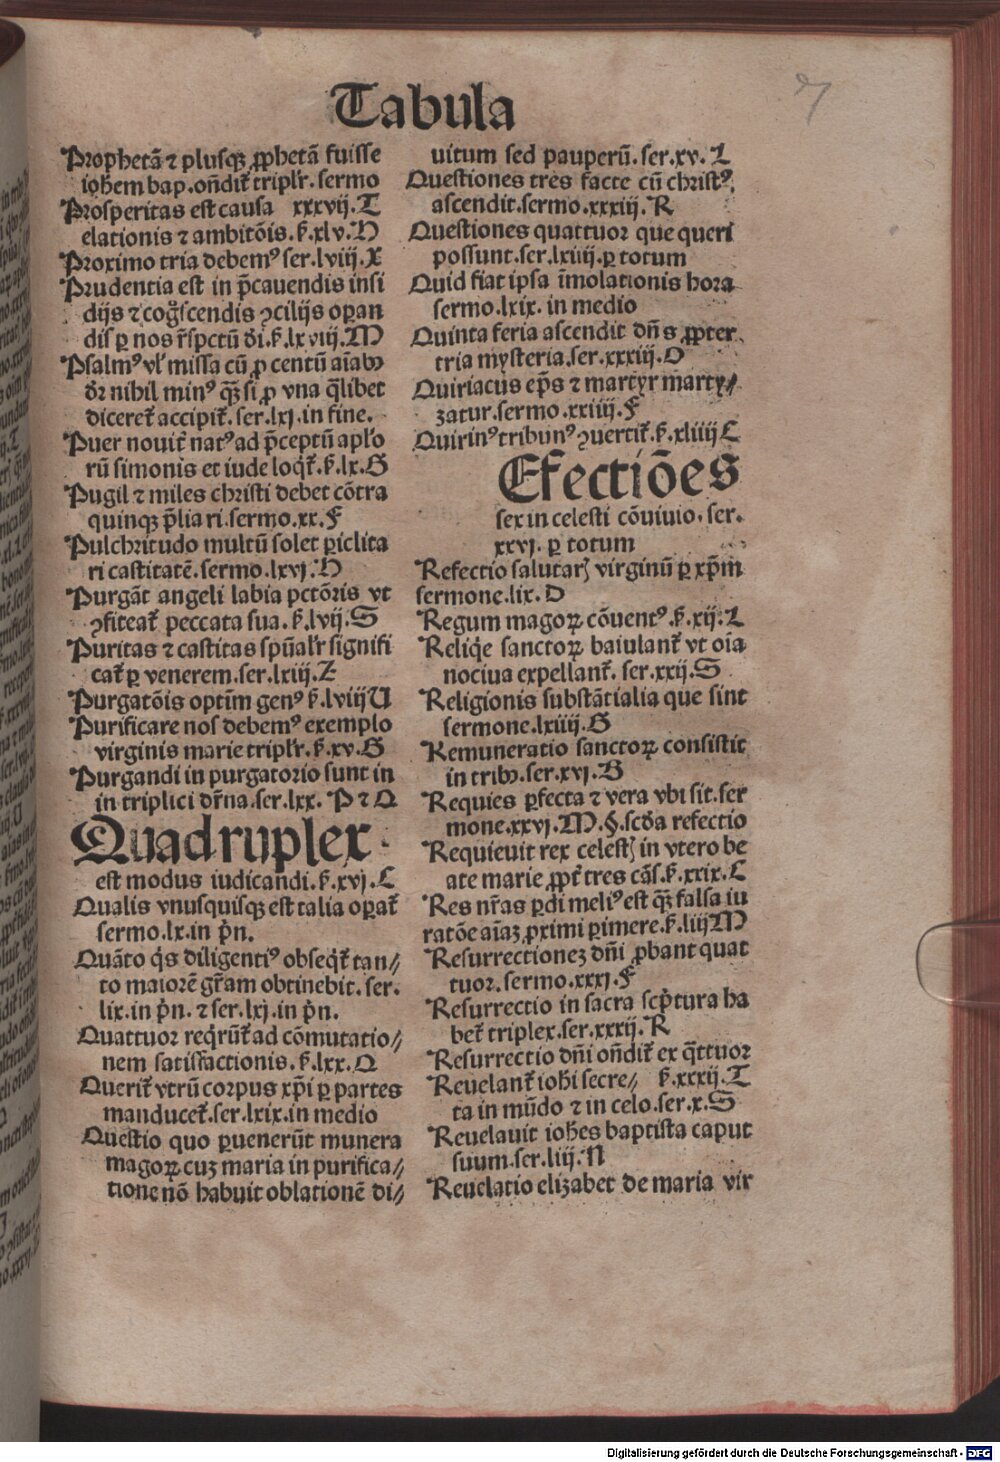 Tabula
7
Prophetā ⁊ plusqꝫ ꝓphetā fuisse
ioħem bap. oñdit᷑ triplr̄. sermo
Prosperitas est causa xxxvij. T
elationis ⁊ ambitōis. ẜ. xlv. H
Proximo tria debemꝰ ser. lviij. X
Prudentia est in p̄cauendis insi
dijs ⁊ cogͦscendis ꝯcilijs oꝑan
dis ꝑ nos r̄spctū di. ẜ. lxviij. M
Psalmꝰ vl̓ missa cū ꝓ centū aīabꝫ
dr̄ nihil minꝰ qꝫ̄ si ꝓ vna q̄libet
diceret᷑ accipit᷑. ser. lxj. in fine.
Puer nouit᷑ natꝰ ad p̄ceptū apl̓o
rū simonis et iude loqt᷑. ẜ. lx. G
Pugil ⁊ miles christi debet cōtra
quinqꝫ p̄lia ri. sermo. xx. F
Pulchritudo multū solet ꝑiclita
ri castitatē. sermo. lxvj. H
Purgāt angeli labia pctōris vt
ꝯfiteat᷑ peccata sua. ẜ. lvij. S
Puritas ⁊ castitas spūalr̄ signifi
cat᷑ ꝑ venerem. ser. lxiij. Z
Purgatōis optim̄ genꝰ ẜ. lviij U
Purificare nos debemꝰ exemplo
virginis marie triplr̄. ẜ. xv. G
Purgandi in purgatorio sunt in
in triplici dr̄na. ser. lxx. P ⁊ Q
Quadruplex
est modus iudicandi. ẜ. xvj. C
Qualis vnusquisqꝫ est talia oꝑat᷑
sermo. lx. in pn̄.
Quāto qs diligentiꝰ obseqt᷑ tan//
to maiorē gr̄am obtinebit. ser.
lix. in pn̄. ⁊ ser. lxj. in pn̄.
Quattuor reqrūt᷑ ad cōmutatio//
nem satisfactionis. ẜ. lxx. Q
Querit᷑ vtrū corpus xp̄i ꝑ partes
manducet᷑. ser. lxix. in medio
Questio quo ꝑuenerūt munera
magoꝝ cuꝫ maria in purifica//
tione nō habuit oblationē di//
uitum sed pauperū. ser. xv. L
Questiones tres facte cū christꝰ
ascendit. sermo. xxxiij. R
Questiones quattuor que queri
possunt. ser. lxiiij. ꝑ totum
Quid fiat ipsa īmolationis hora
sermo. lxix. in medio
Quinta feria ascendit dn̄s ꝓpter
tria mysteria. ser. xxxiij. O
Quiriacus ep̄s ⁊ martyr marty//
zatur. sermo. xxiiij. F
Quirinꝰ tribunꝰ ꝯuertit᷑. ẜ. xliiij C
Efectiōes
sex in celesti cōuiuio. ser.
xxvj. ꝑ totum
Refectio salutarꝭ virginū ꝑ xp̄m
sermone. lix. D
Regum magoꝝ cōuentꝰ. ẜ. xij. L
Reliqe sanctoꝝ baiulant᷑ vt oīa
nociua expellant᷑. ser. xxij. S
Religionis substātialia que sint
sermone. lxiiij. G
Remuneratio sanctoꝝ consistit
in tribꝫ. ser. xvj. B
Requies ꝑfecta ⁊ vera vbi sit. ser
mone. xxvj. M. §. scd̄a refectio
Requieuit rex celestꝭ in vtero be
ate marie ꝓpt᷑ tres cās. ẜ. xxix. C
Res nr̄as ꝑdi meliꝰ est qꝫ̄ falsa iu
ratōe aīaꝫ ꝓximi ꝑimere. ẜ. liij M
Resurrectioneꝫ dn̄i ꝓbant quat
tuor. sermo. xxxj. F
Resurrectio in sacra scptura ha
bet᷑ triplex. ser. xxxij. R
Resurrectio dn̄i oñdit᷑ ex q̄ttuor
Reuelant᷑ ioħi secre// ẜ. xxxij. T
ta in mūdo ⁊ in celo. ser. x. S
Reuelauit ioħes baptista caput
suum. ser. liij. N
Reuelatio elizabet de maria vir
Digitalisierung gefördert durch die Deutsche Forschungsgemeinschaft - DFG